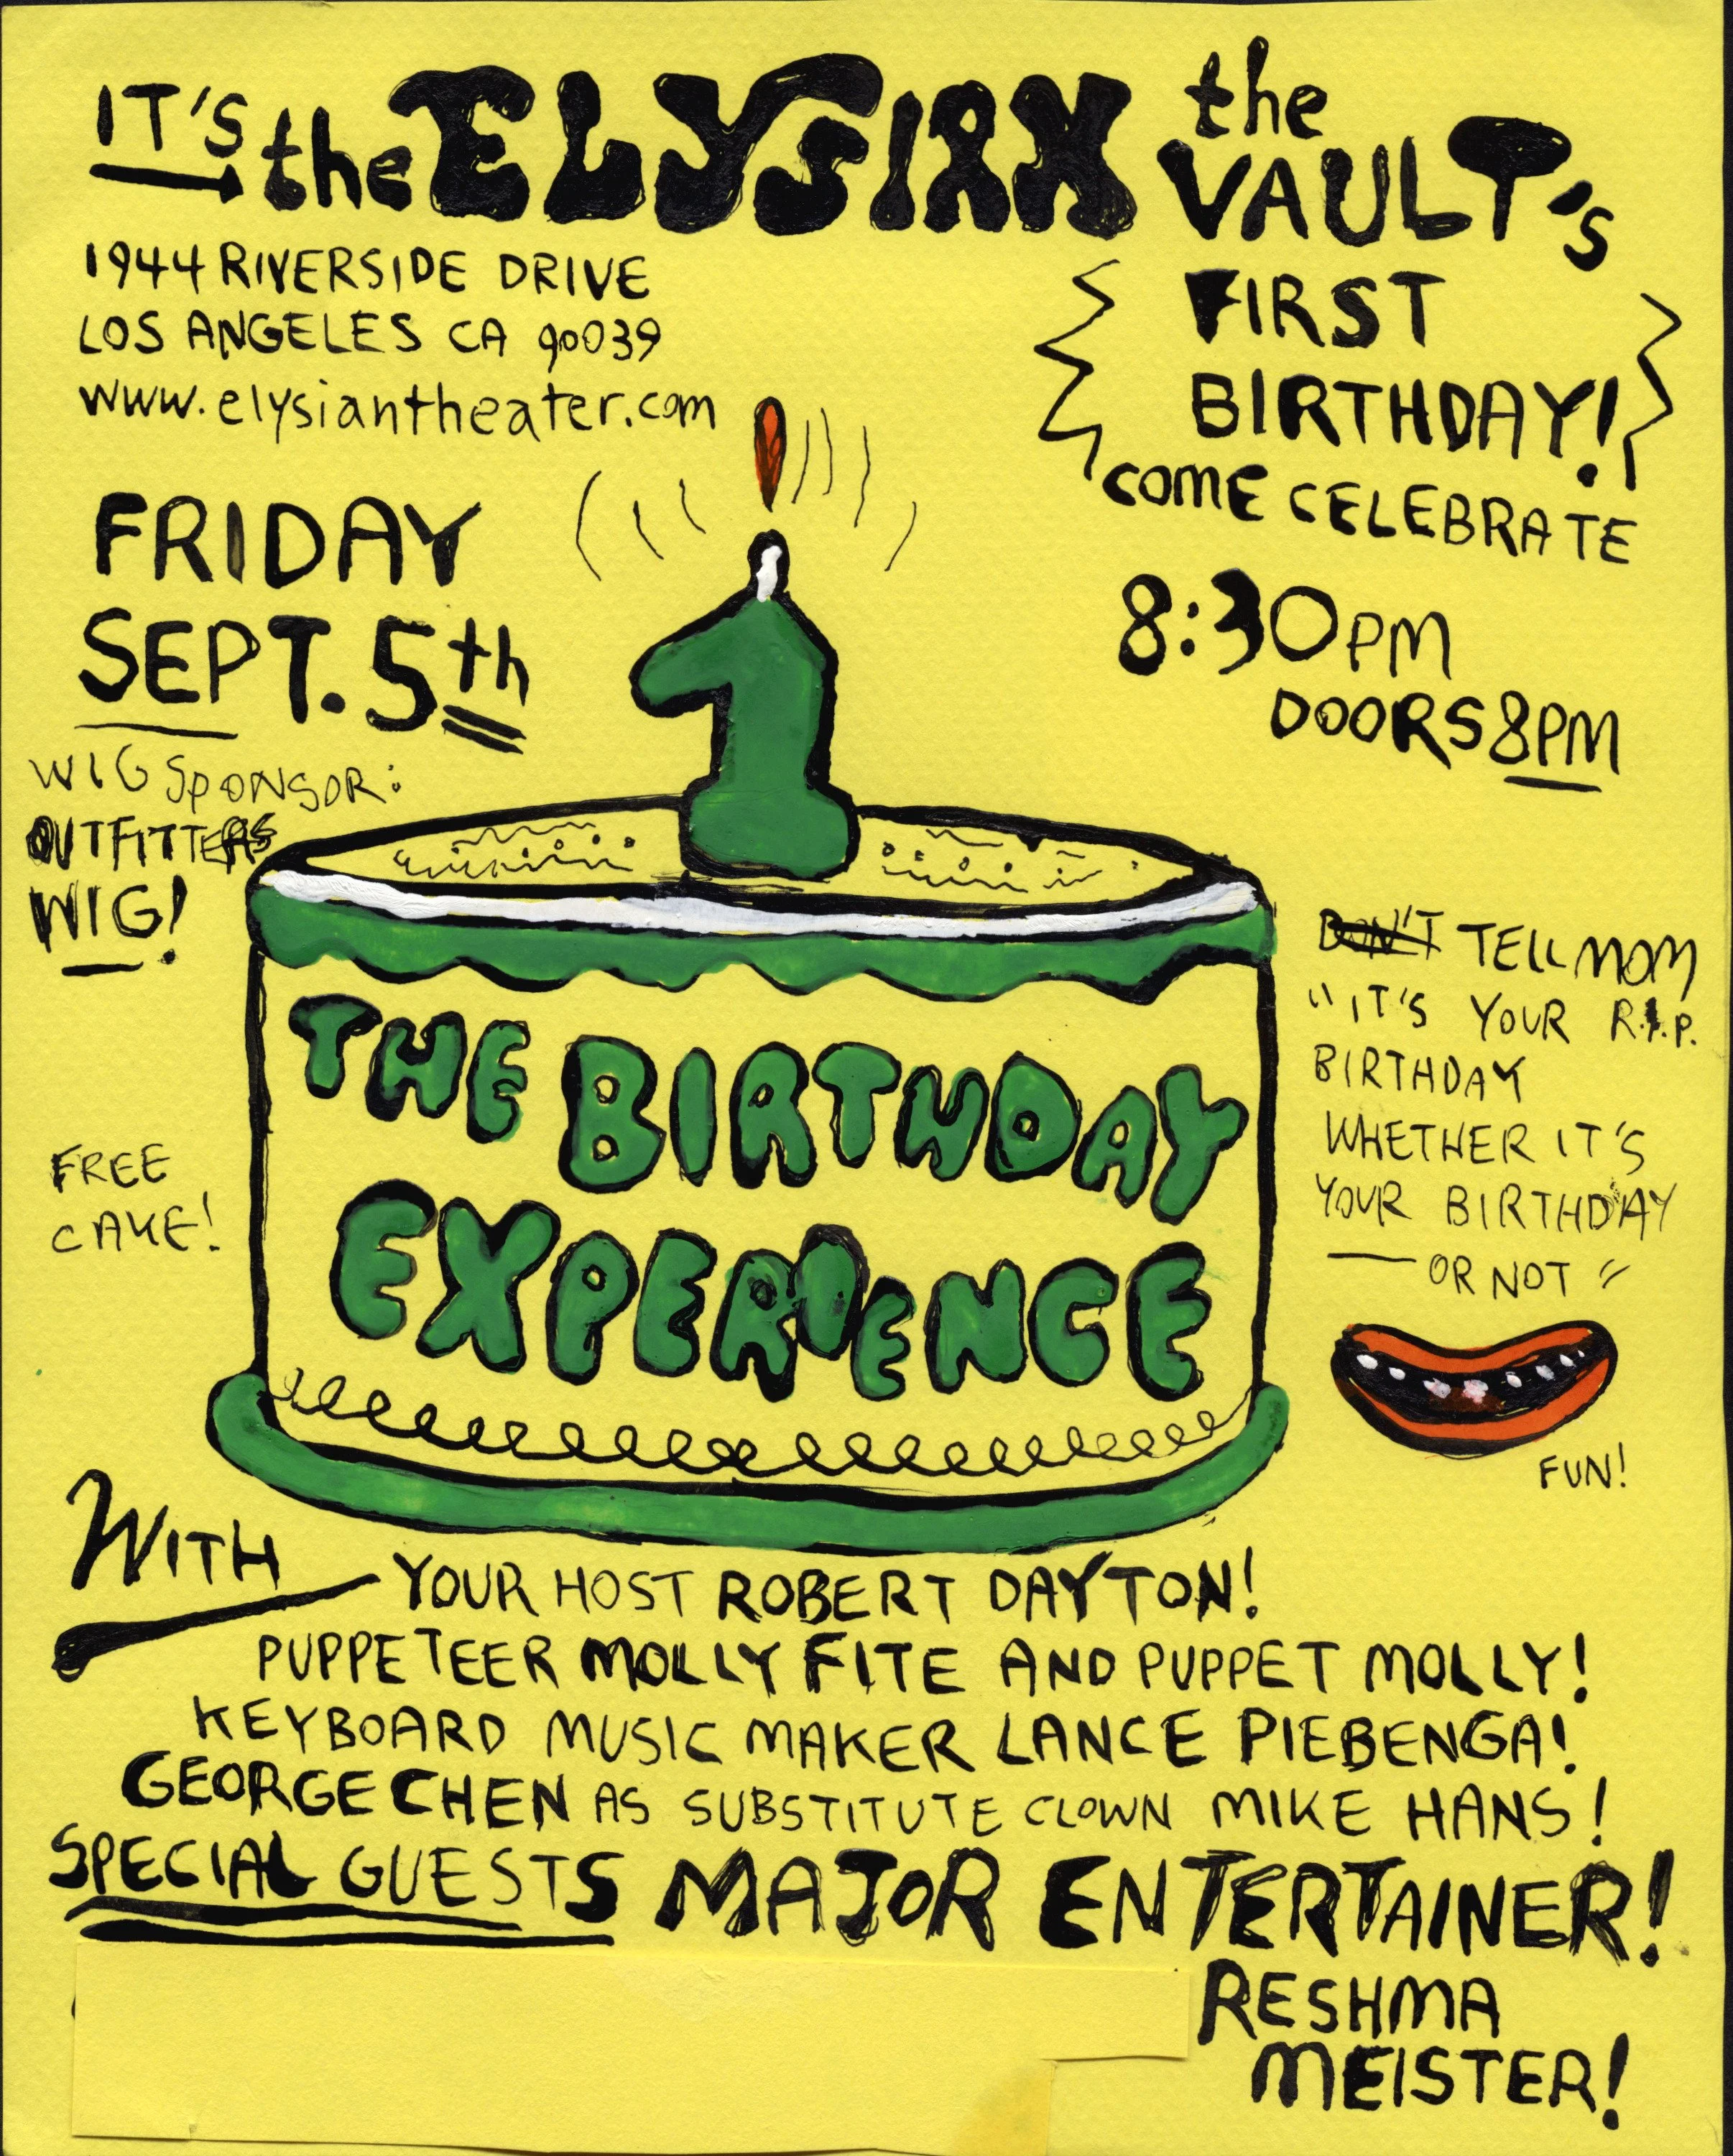 IT'S the ELYSIAN the VAULT's
1944 RIVERSIDE DRIVE
LOS ANGELES CA 90039
www.elysiantheater.com
FIRST
BIRTHDAY!
COME CELEBRATE
FRIDAY
SEPT. 5th
8:30PM
DOORS 8PM
WIG SPONSOR:
OUTFITTERS
WIG!
1
THE BIRTHDAY
EXPERIENCE
FREE
CAKE!
DON'T TELL MOM
"IT'S YOUR R.I.P.
BIRTHDAY
WHETHER IT'S
YOUR BIRTHDAY
— OR NOT"
FUN!
WITH
YOUR HOST ROBERT DAYTON!
PUPPETEER MOLLY FITE AND PUPPET MOLLY!
KEYBOARD MUSIC MAKER LANCE PIEBENGA!
GEORGE CHEN AS SUBSTITUTE CLOWN MIKE HANS!
SPECIAL GUESTS MAJOR ENTERTAINER!
RESHMA
MEISTER!